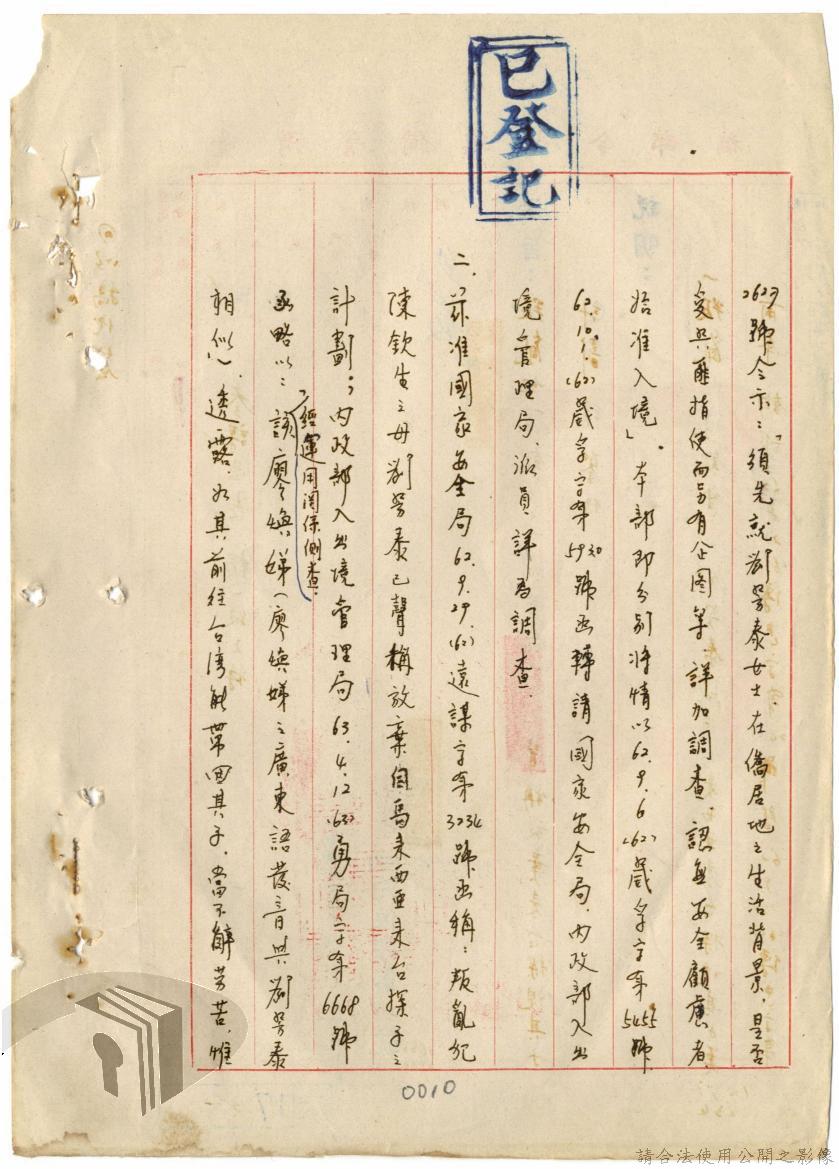 已登記
2627號令示：「須先就劉芳泰女士在僑居地之生活背景，是否
受共匪指使而另有企圖等，詳加調查，認無安全顧慮者，
始准入境」。本部即分別將情以62.9.6(62)崴孚字第5455號
62.10.1.(62)崴孚字第5930號函轉請國家安全局、內政部入出
境管理局、派員詳為調查。
二、茲准國家安全局62.9.29.(62)遠謀字第3234號函稱：叛亂犯
陳欽生之母劉芳泰已聲稱放棄自馬來西亞來台探子之
計劃；內政部入出境管理局63.4.12(63)勇局字第6668號
函略以：「經運用關係側查，該廖煥娣（廖煥娣之廣東語發音與劉芳泰
相似），透露，如其前往台灣能帶回其子，當不辭勞苦，惟
0010
請合法使用公開之影像